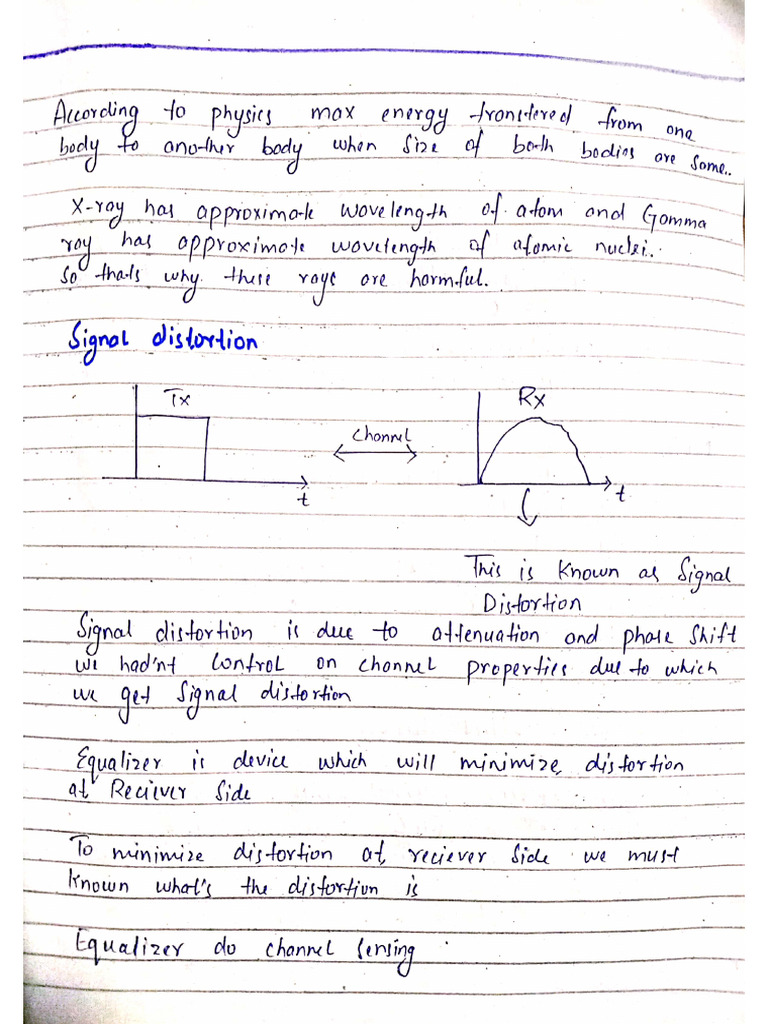 According to physics max energy transfered from one
body to another body when size of both bodies are same..
X-ray has approximate wavelength of atom and Gamma
ray has approximate wavelength of atomic nuclei.
so thats why these rays are harmful.
Signal distortion
Tx
Rx
channel
t
t
This is known as Signal
Distortion
Signal distortion is due to attenuation and phase shift
we had'nt control on channel properties due to which
we get signal distortion
Equalizer is device which will minimize distortion
at Reciever side
To minimize distortion at reciever side we must
known what's the distortion is
Equalizer do channel sensing